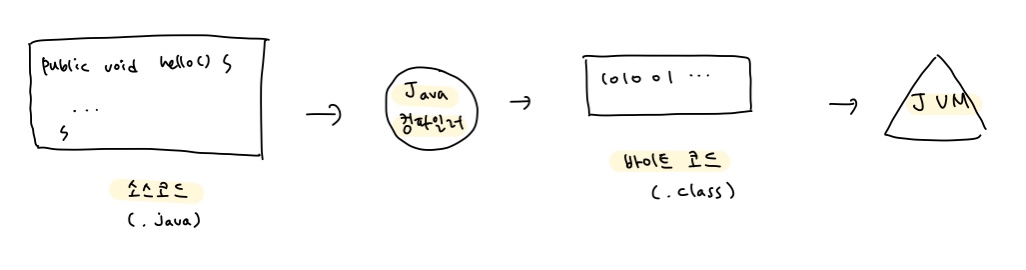 public void hello() {
...
}
소스코드
(.java)
Java
컴파일러
101001 ...
바이트 코드
(.class)
JVM